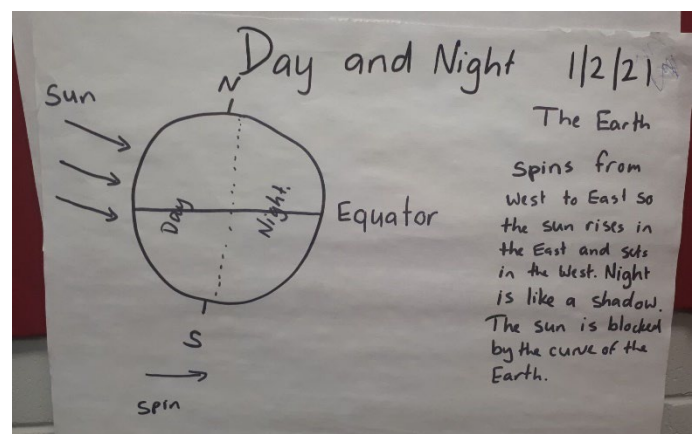 Day and Night 1/2/21
Sun
N
Day
Night
Equator
S
spin
The Earth
spins from
west to East so
the sun rises in
the East and sets
in the West. Night
is like a shadow.
The sun is blocked
by the curve of the
Earth.